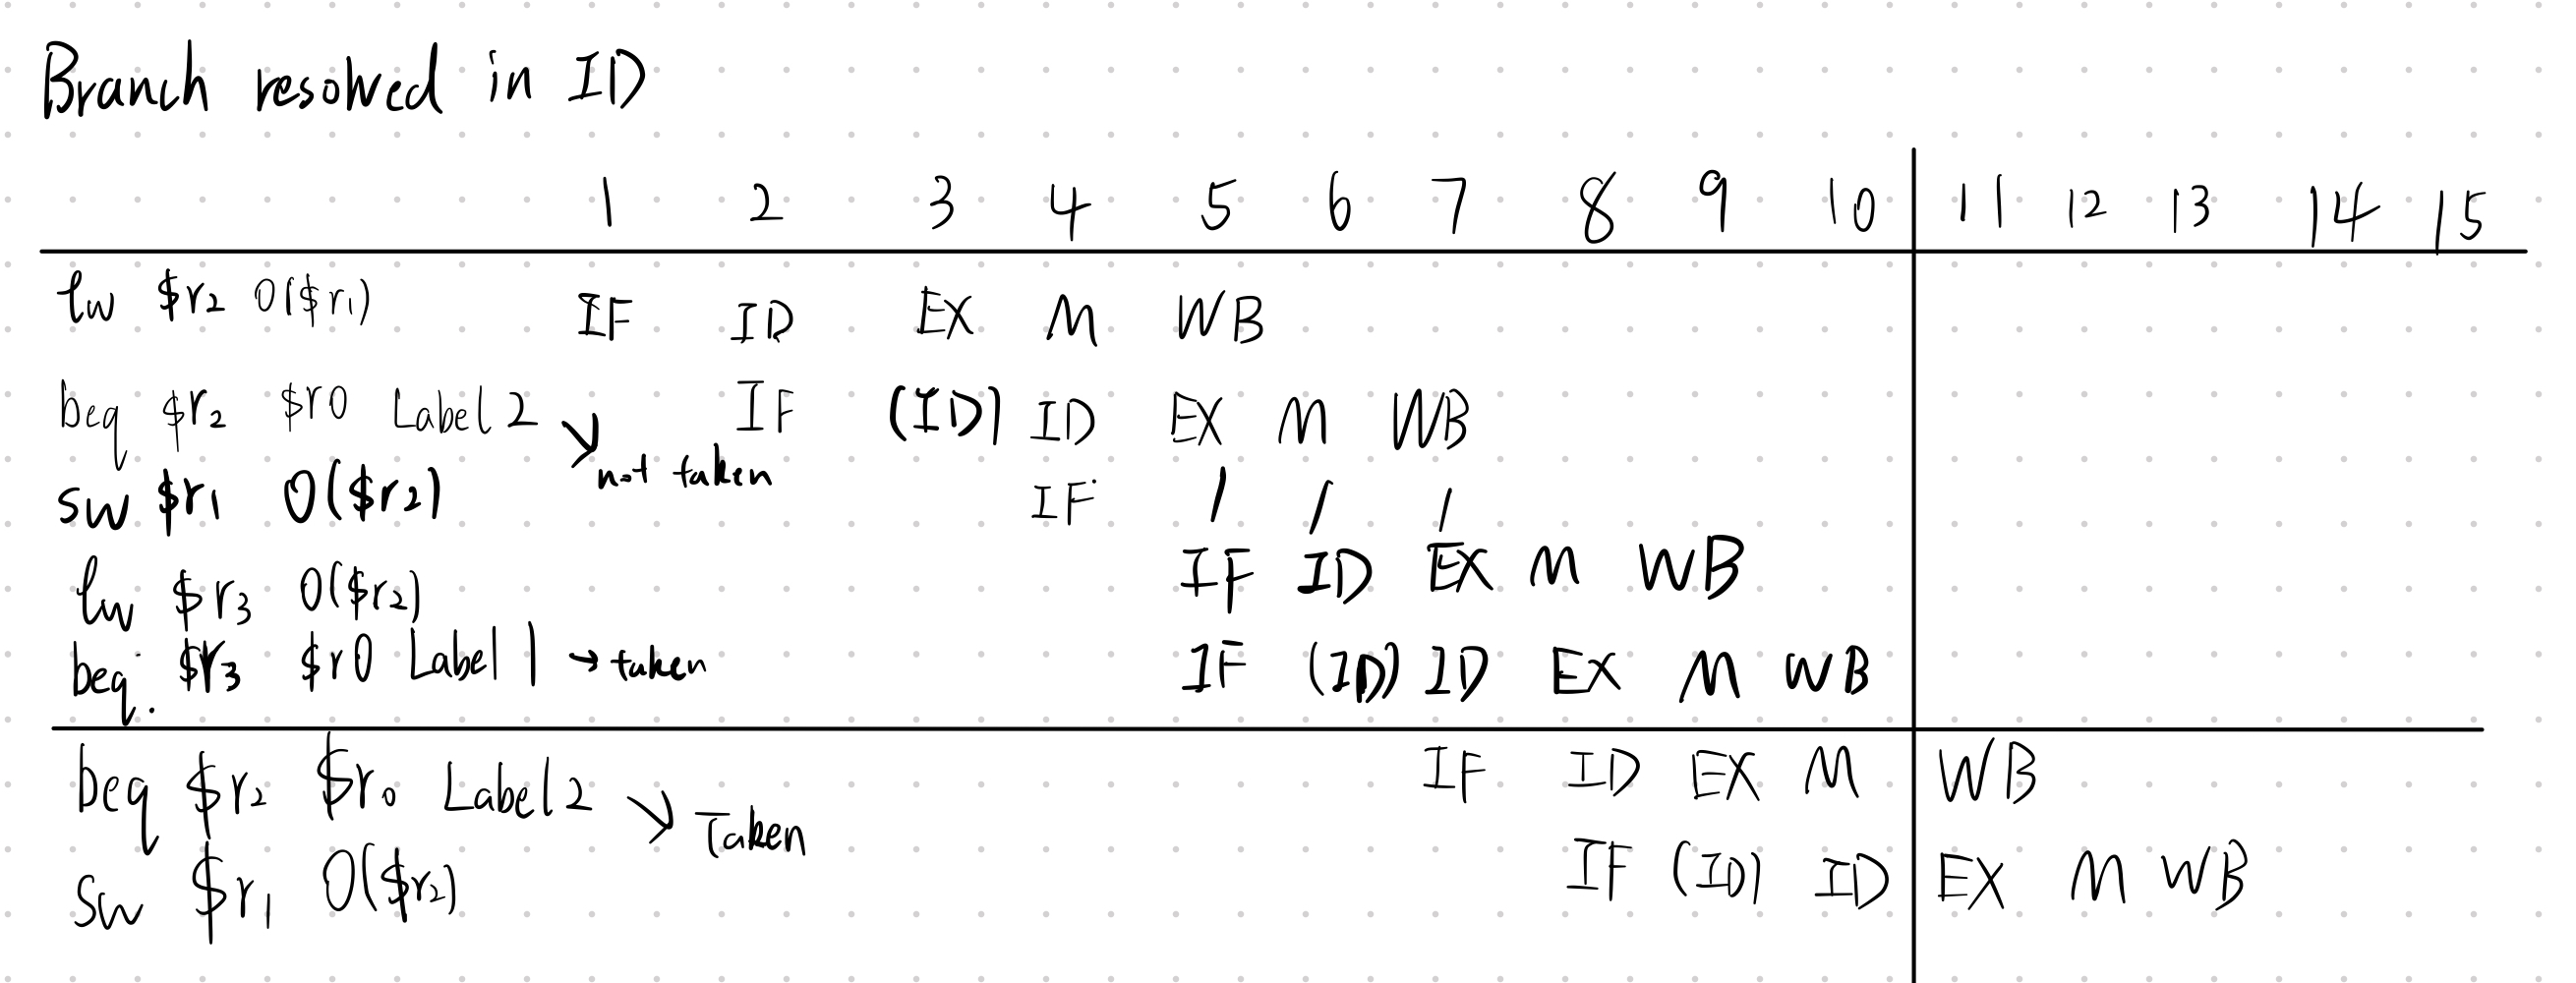 Branch resolved in ID
1 2 3 4 5 6 7 8 9 10 11 12 13 14 15
lw $r2 0($r1) IF ID EX M WB
beq $r2 $r0 Label2 ↘ not taken IF (ID) ID EX M WB
sw $r1 0($r2) IF / / /
lw $r3 0($r2) IF ID EX M WB
beq. $r3 $r0 Label1 → taken IF (ID) ID EX M WB
beq $r2 $r0 Label2 ↘ Taken IF ID EX M WB
sw $r1 0($r2) IF (ID) ID EX M WB